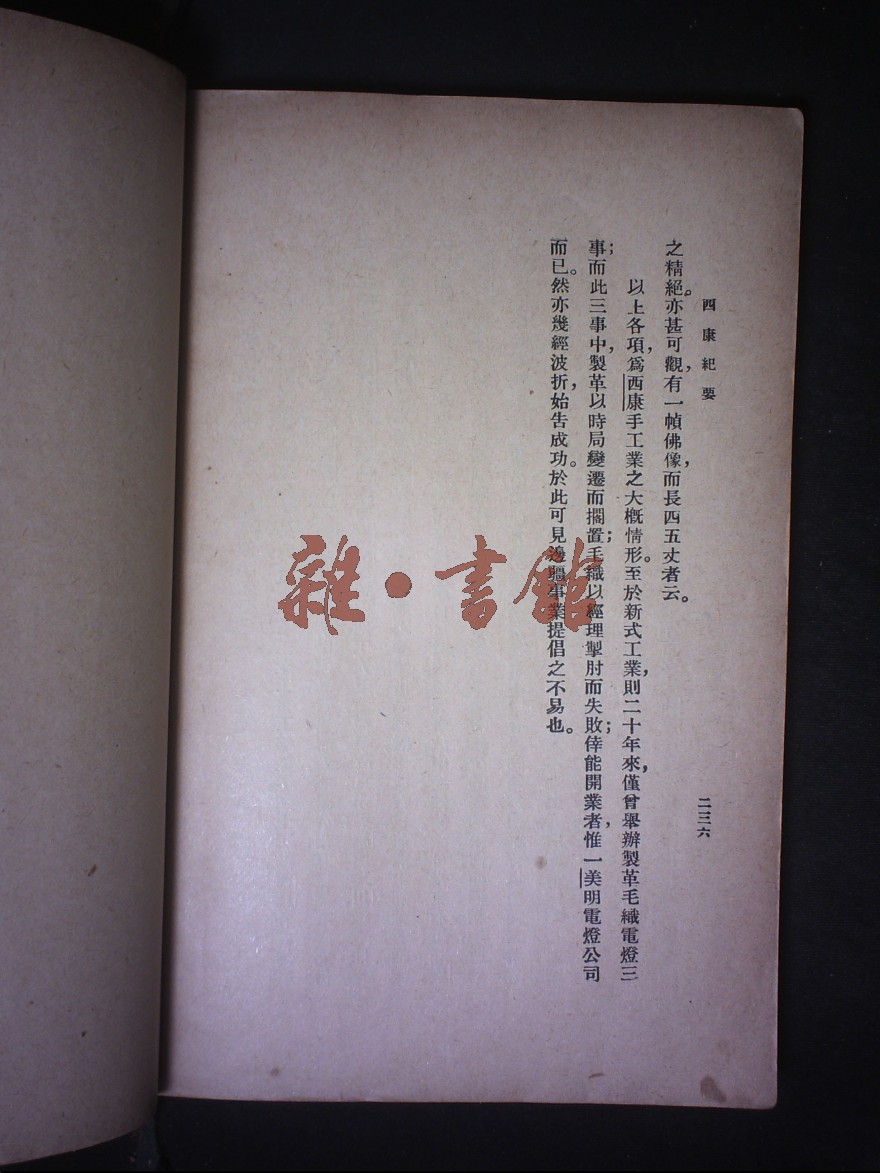 西康紀要
二三六
之精絕。亦甚可觀，有一幀佛像，而長四五丈者云。
以上各項，爲西康手工業之大槪情形。至於新式工業，則二十年來，僅曾舉辦製革毛織電燈三
事；而此三事中，製革以時局變遷而擱置；毛織以經理掣肘而失敗；倖能開業者，惟一美明電燈公司
而已。然亦幾經波折，始告成功。於此可見邊疆事業提倡之不易也。
雜·書館